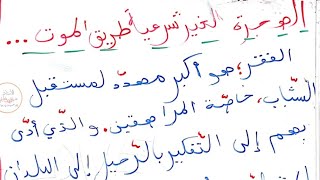 الهجرة الغير شرعية أطريق الموت...
الفقر؛ هو أكبر مهدد لمستقبل
الشباب، خاصة المراهقين. والذي أدى
بهم إلى التفكير بالرحيل إلى البلدان